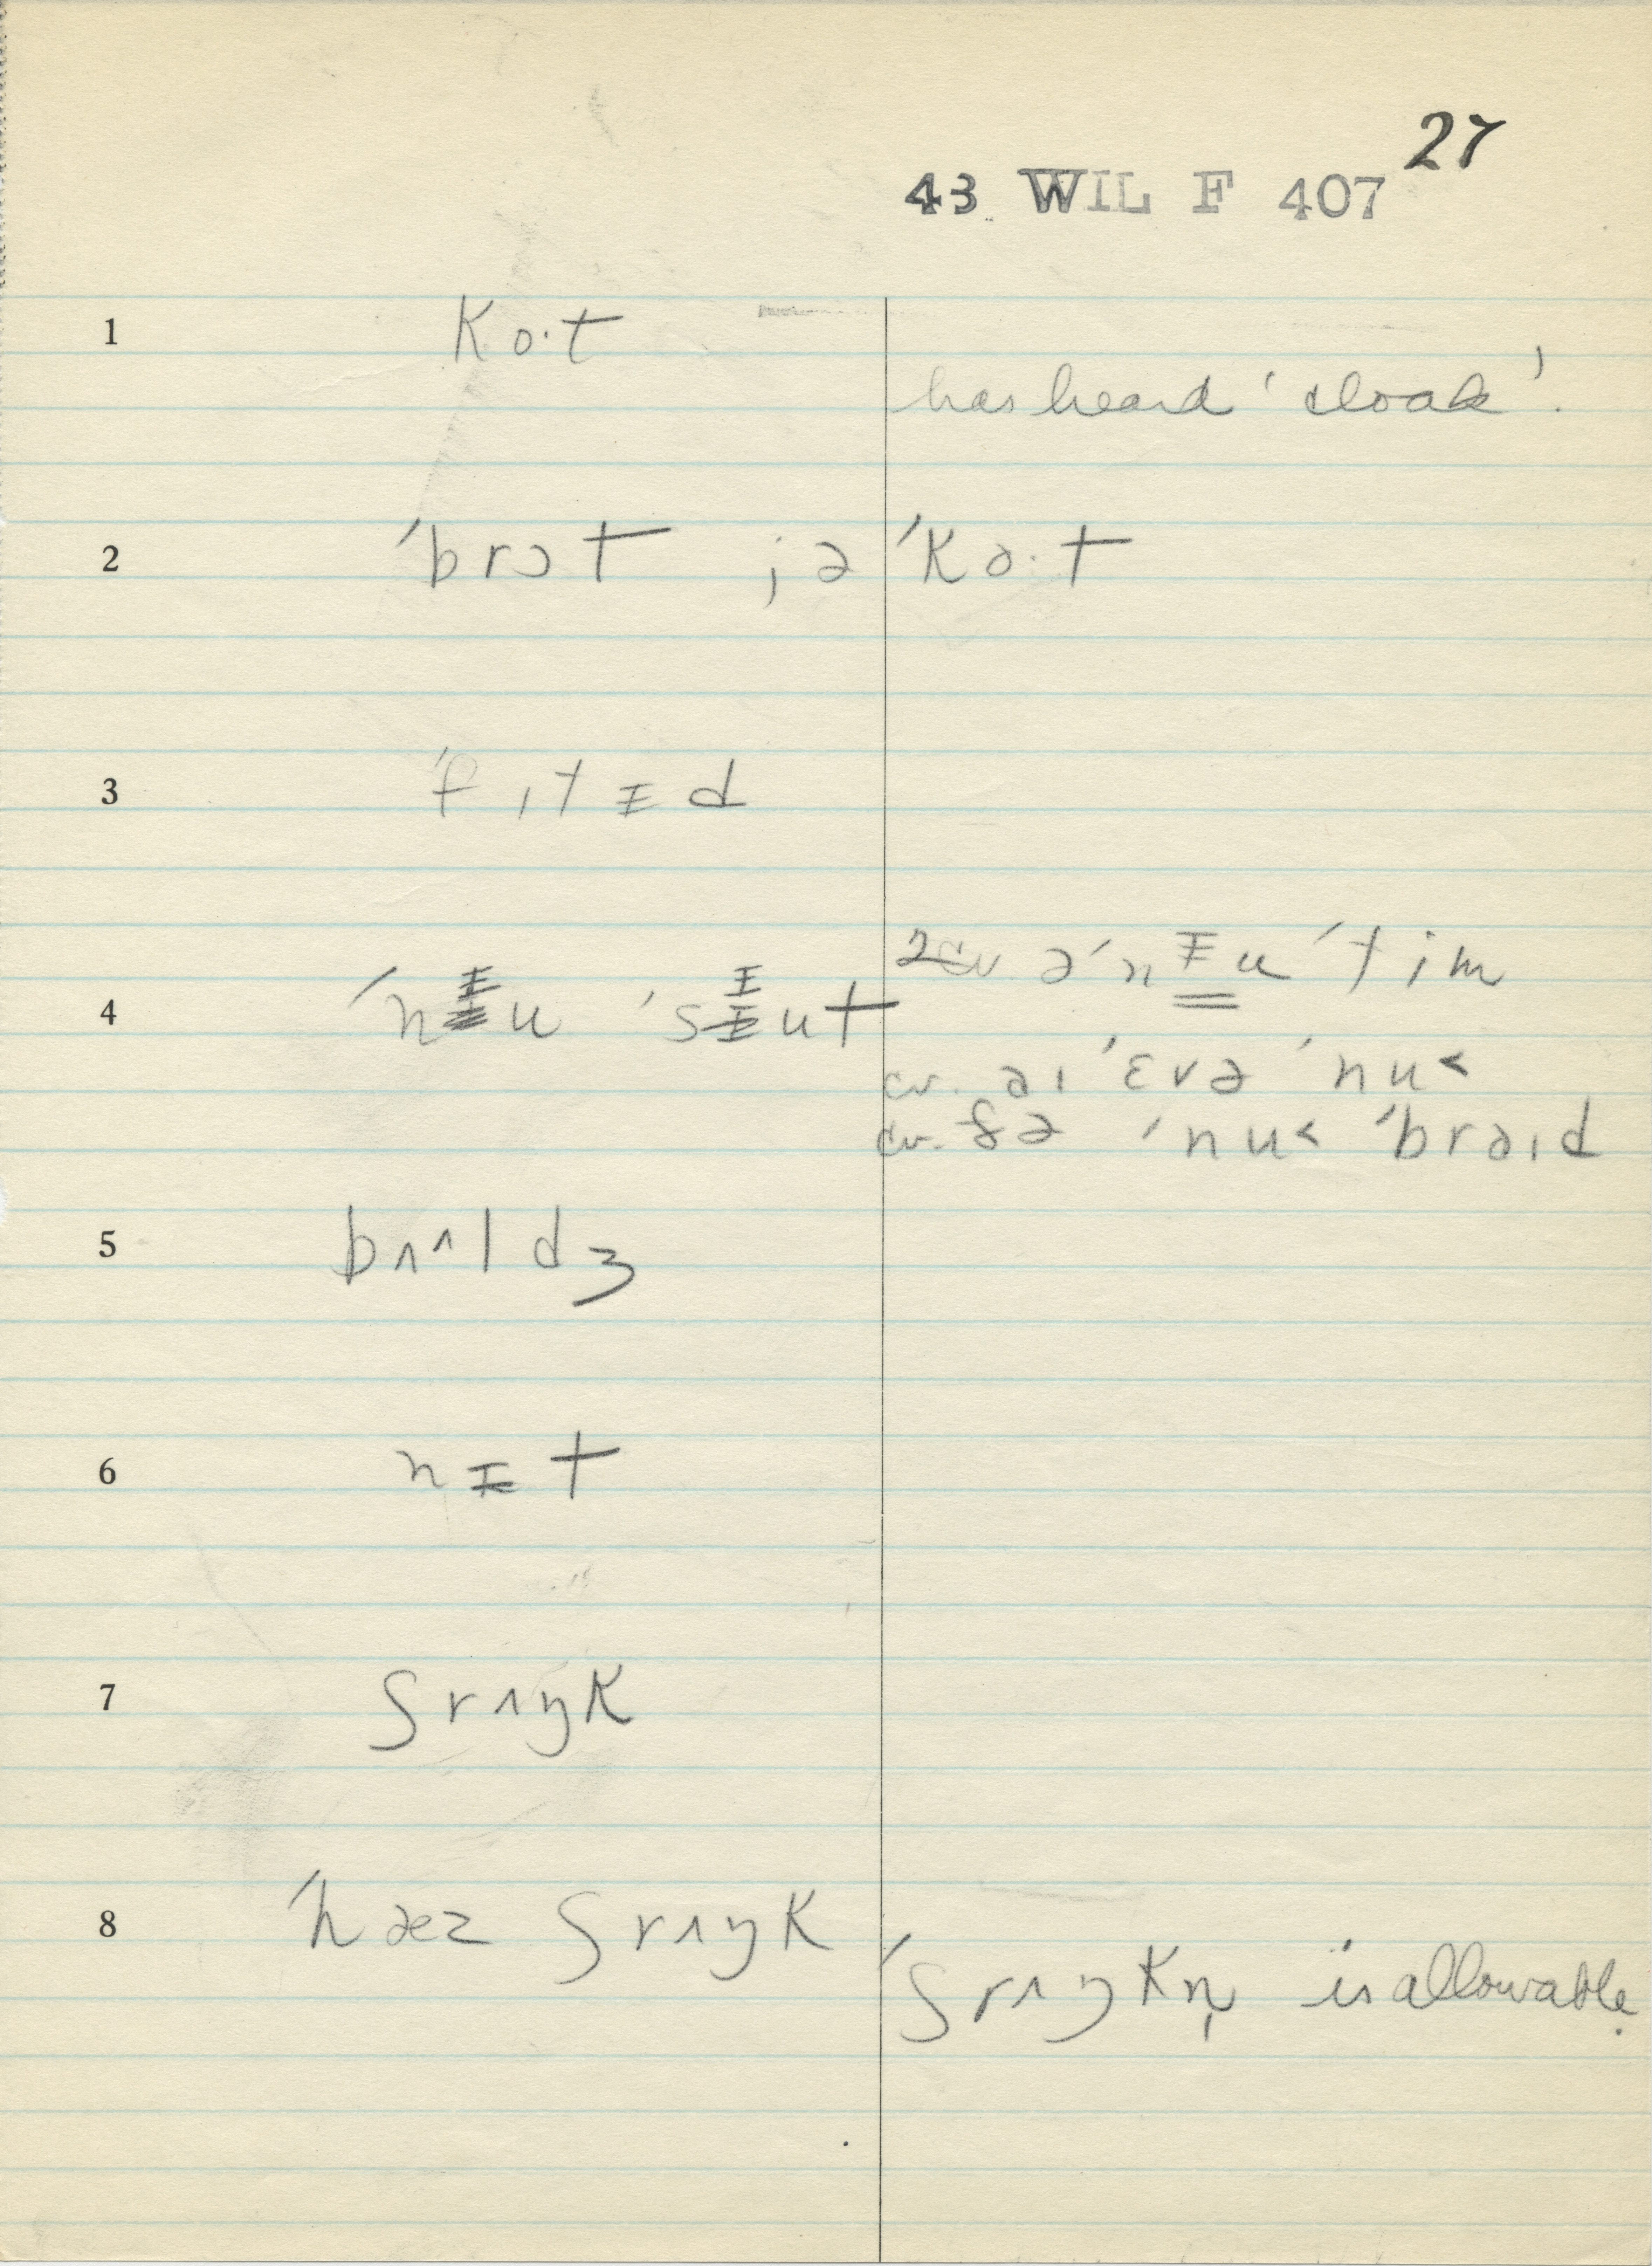 27
43 WIL F 407
1 ko·t
has heard 'cloak'.
2 ˈbrɔt jə ˈko·t
3 ˈfɪtᵻd
4 ˈnᵻu ˈsᵻut
2 cv. əˈnᵻu ˈtim
cv. aɪ ˈɛvə ˈnu˂
cv. ðə ˈnu˂ ˈbrəɪd
5 bʌ^ldʒ
6 nᵻt
7 ʃrʌŋk
8 ˈhæz ʃrʌŋk
ˈʃrʌŋkn̩ is allowable.